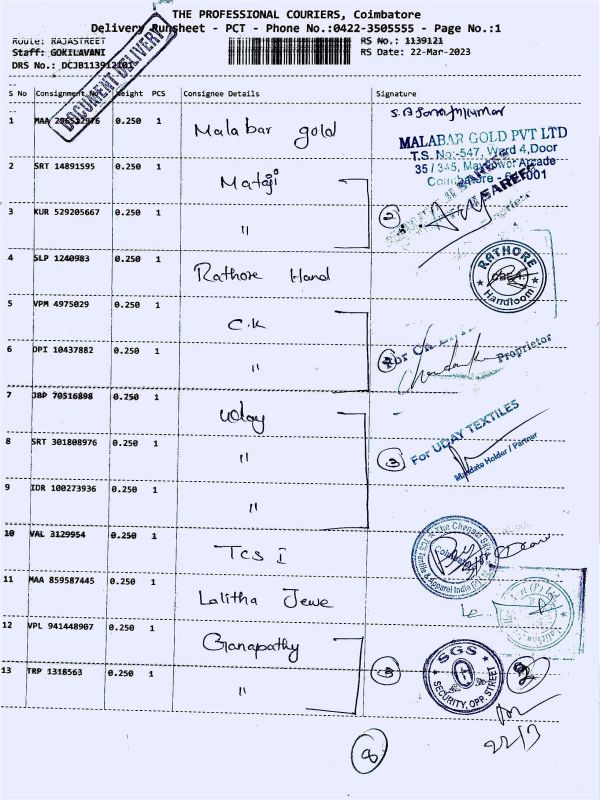 THE PROFESSIONAL COURIERS, Coimbatore
Delivery Runsheet - PCT - Phone No.:0422-3505555 - Page No.:1
Route: RAJASTREET
RS No.: 1139121
Staff: GOKILAVANI
RS Date: 22-Mar-2023
DRS No.: DCJB113912101
DOCUMENT DELIVERY
S No Consignment No Weight PCS Consignee Details Signature
1 MAA 0.250 1 Malabar gold
MALABAR GOLD PVT LTD
T.S. No:-547, Ward 4,Door
35 / 345, Mayflower Arcade
2 SRT 14891595 0.250 1 Mataji
3 KUR 529205667 0.250 1 " 2
4 SLP 1240983 0.250 1 Rathore Hand
RATHORE
Handloom
5 VPM 4975029 0.250 1 C.K
6 DPI 10437882 0.250 1 "
Proprietor
7 JBD 70516898 0.250 1 Uday
8 SRT 301808976 0.250 1 " 3
For UDAY TEXTILES
Mandate Holder / Partner
9 IDR 100273936 0.250 1 "
10 VAL 3129954 0.250 1 TCS I
The Chennai
TCS Textile & Apparel India
11 MAA 859587445 0.250 1 Lalitha Jewe
12 VPL 941448907 0.250 1 Ganapathy
13 TRP 1318563 0.250 1 "
SGS
SECURITY, OPP. STREET
22/3